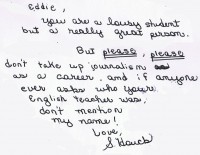 Eddie,
you are a lousy student
but a really great person.
But please, please
don't take up journalism
as a career, and if anyone
ever asks who your
English teacher was,
don't mention
my name!
Love,